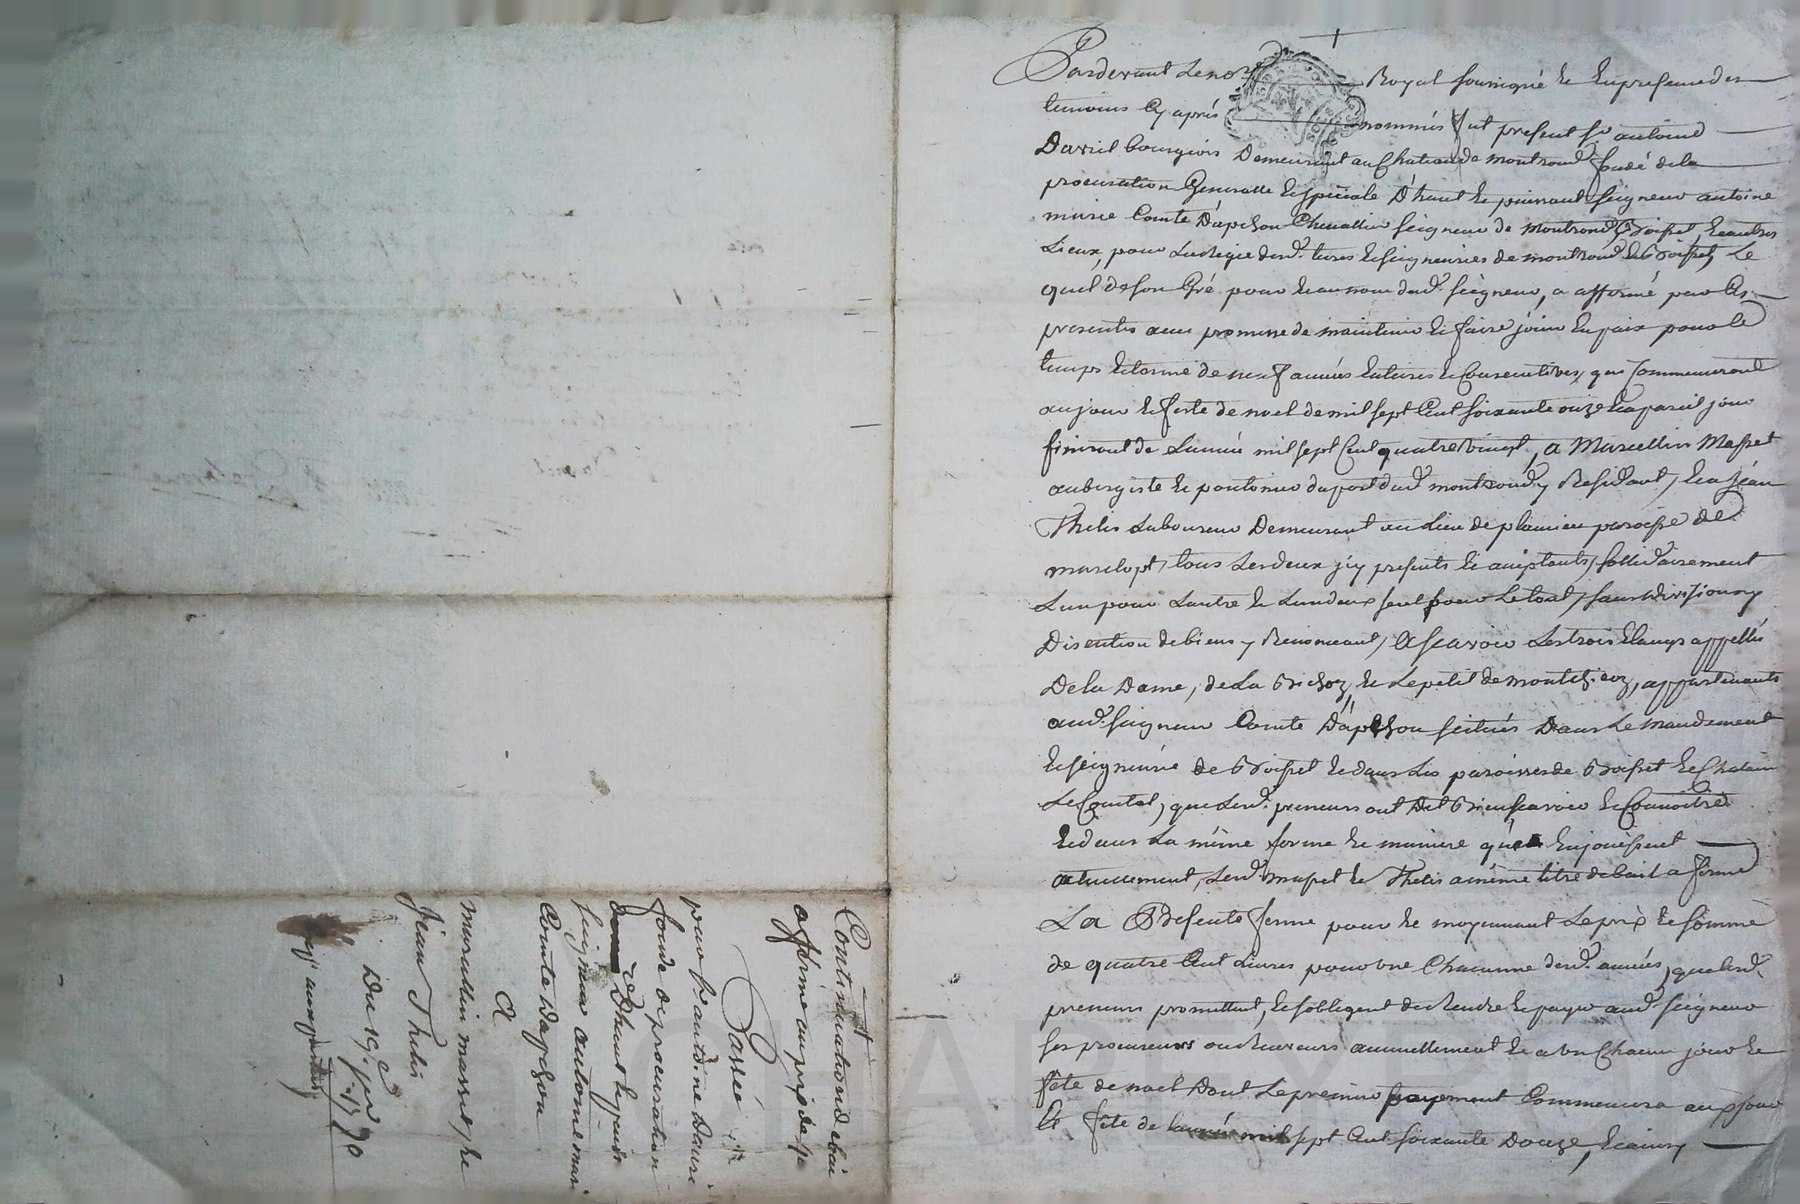 Pardevant le nore Royal soussigné et en presence des
temoins cy après nommés fut present sr antoine
Davril bourgeois Demeurant au Chateau de montrond, fondé de la
procuration Generalle et speciale D'haut et puissant seigneur antoine
marie Comte D'apchon Chevallier seigneur de montrond, Boisset, et autres
Lieux, pour la Regie desd. terres et seigneuries de montrond et Boisset, Le
quel de son Gré pour et au nom dud. seigneur, a affermé par Ces
presentes avec promesse de maintenir et faire joüir en paix pour le
temps et terme de neuf années entieres et Consecutives, qui Commenceront
au jour et feste de noel de mil sept Cent soixante onze et a pareil jour
finiront de L'année mil sept Cent quatre vingt, a Marcellin Masset
aubergiste et pontonier du port dud. montrond y Residant, et a Jean
Thelis Laboureur Demeurant au Lieu de plancieu paroisse de
marclopt, tous Les deux icy presents et acceptants, sollidairement
L'un pour L'autre et L'un deux seul pour Le tout, sans division ny
Discution de biens y Renonceant, A scavoir Les trois Etangs appellés
De la Dame, de La Brichoy, et Le petit de montchieroy, appartenants
aud. seigneur Comte D'apchon scitués Dans Le mandement
et seigneurie de Boisset et dans Les paroisses de Boisset et Chalain
Le Comtal, que Lesd. preneurs ont Dit Bien scavoir et Connoitre
et dans La même forme et maniere qu'en en joüissent
actuellement, Lesd. masset et Thelis a même titre de bail a ferme
La Presente ferme pour et moyennant Le prix et somme
de quatre Cent Livres pour une Chacunne desd. années, que lesd.
preneurs promettent, et s'obligent de Rendre et payer aud. seigneur
ses procureurs ou Receveurs annuellement et a un Chacun jour et
fête de noel Dont Le premier payement Commencera au jour
et fête de Lannée mil sept Cent soixante Douze, et ainsy
Continuation de bail
afferme au prix de 40
Passée
par sr antoine Davril
fondé de procuration
de D'haut et puissant
seigneur antoine marie
Comte Dapchon
A
marcellin masset, et
Jean Thelis
Du 19e 1770